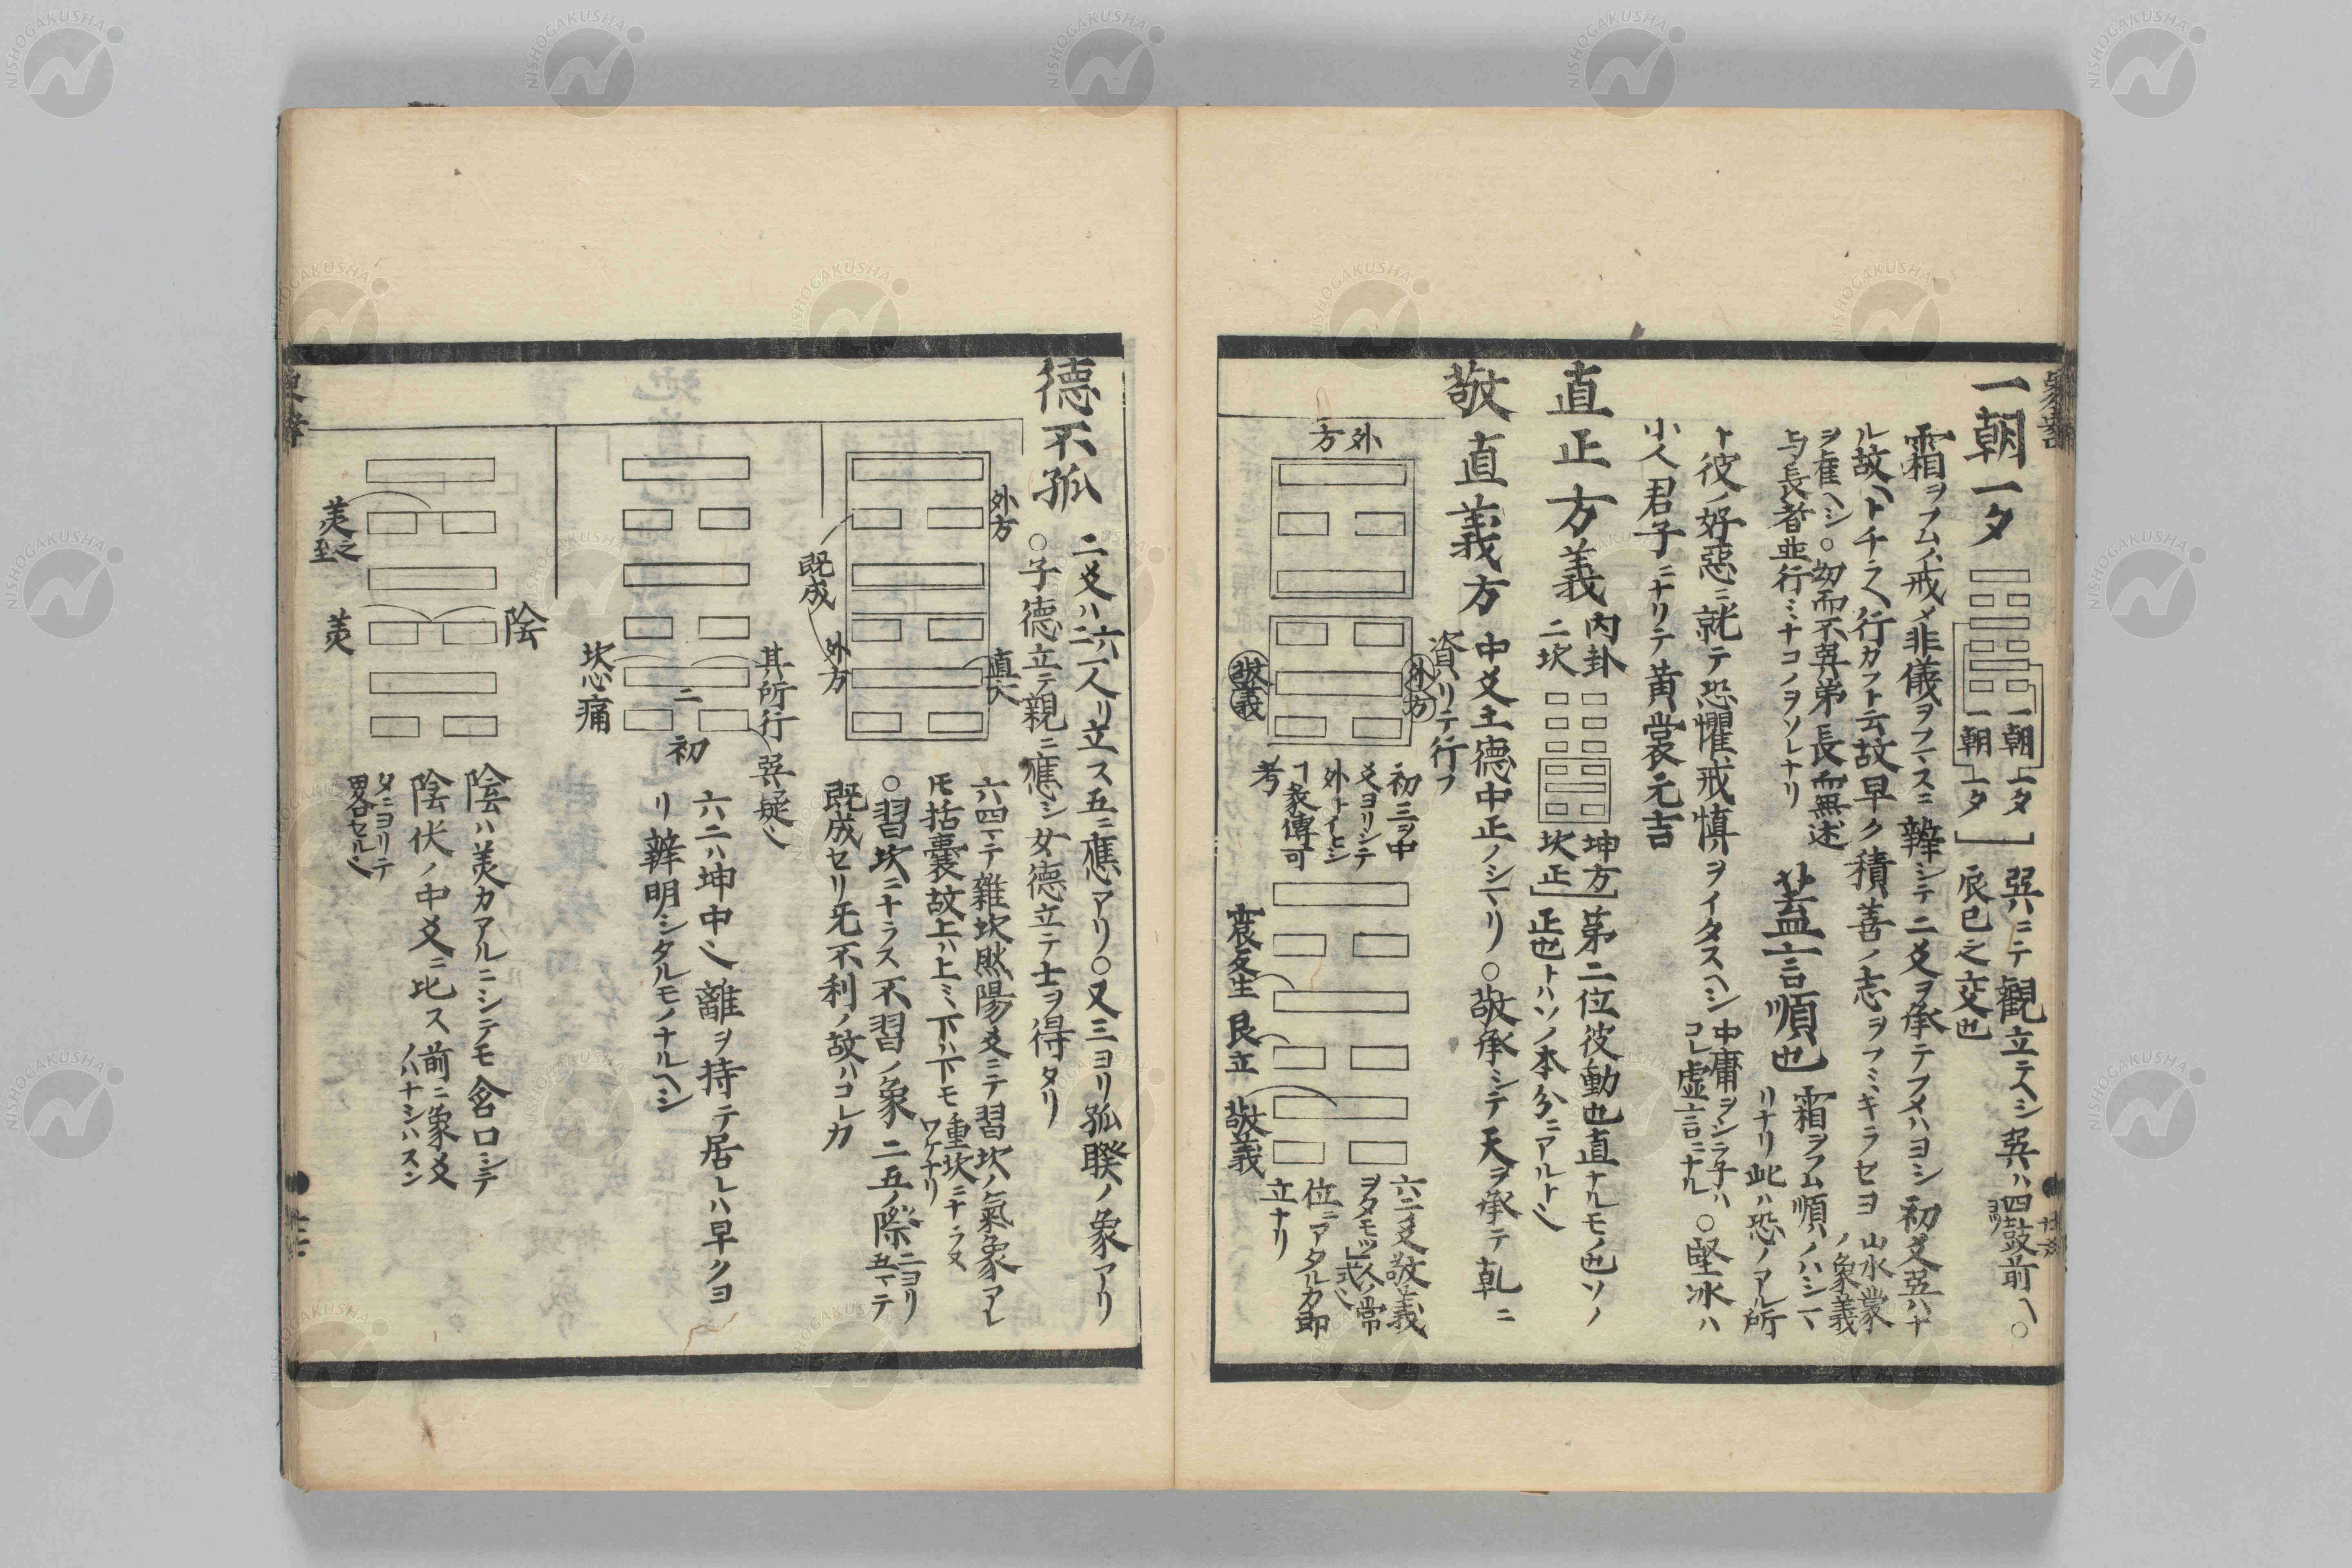 一朝一夕
一朝上夕
一朝上夕
巽ハニテ觀立テヘシ巽ハ四鼓前ヘ○
辰巳之交也
霜ヲフムノ戒メ非儀ヲフマスニ辨シテ二爻ヲ承テフメハヨシ初爻巽ハナ
ル故
行カフト云故早ク積善ノ志ヲフミキラセヨ
山水蒙
ノ象義
幼而不巽弟長而無述
与長者並行ミナコノヲソレナリ
蓋言順也
霜ヲフム順ノハシマ
リナリ此ハ恐ノアル所
ト彼ノ好惡ニ就テ恐懼戒慎ヲイタスヘシ
中庸ヲシラ子ハ
コレ虚言ニナル
○堅冰ハ
小人君子ニナリテ黄裳元吉
直正方義
内卦
二坎
坤方
坎正
第二位彼動也直ナルモノ也ソノ
正也トハソノ本分ニアルトヘ
敬直義方
中爻土德中正ノシマリ○敬承シテ天ヲ承テ乾ニ
資リテ行フ
外方
外方
敬義
初三ヲ中
爻ヨリシテ
外トイヒシ
ヿ彖傳可
考
震反生
艮立
敬義
六二爻敬義
位ニアタルカ即
立ナリ
德不孤
二爻ハ二六一人リ立ス五ニ應アリ○又三ヨリ孤睽ノ象アリ
○子德立テ親ニ應シ女德立テ士ヲ得タリ
外方
直大
既成
外方
六四マテ雜坎然陽爻ニテ習坎ノ氣象アレ
𪜈括囊故上ハ上ミ下ハ下モ
重坎ニナラヌ
ワケナリ
○習坎ニナラス不習ノ象二五ノ際
二ヨリ
五マテ
既成セリ无不利ノ故ハコレカ
其所行
巽疑ヘ
二
初
坎心痛
六二ハ坤中ヘ離ヲ持テ居レハ早クヨ
リ辨明シタルモノナルヘシ
陰
美之至
美
陰ハ美カアルニシテモ含口シテ
陰伏ノ中爻ニ比ス前ニ象爻
ノハナシハスン
タニヨリテ
畧セルヘ